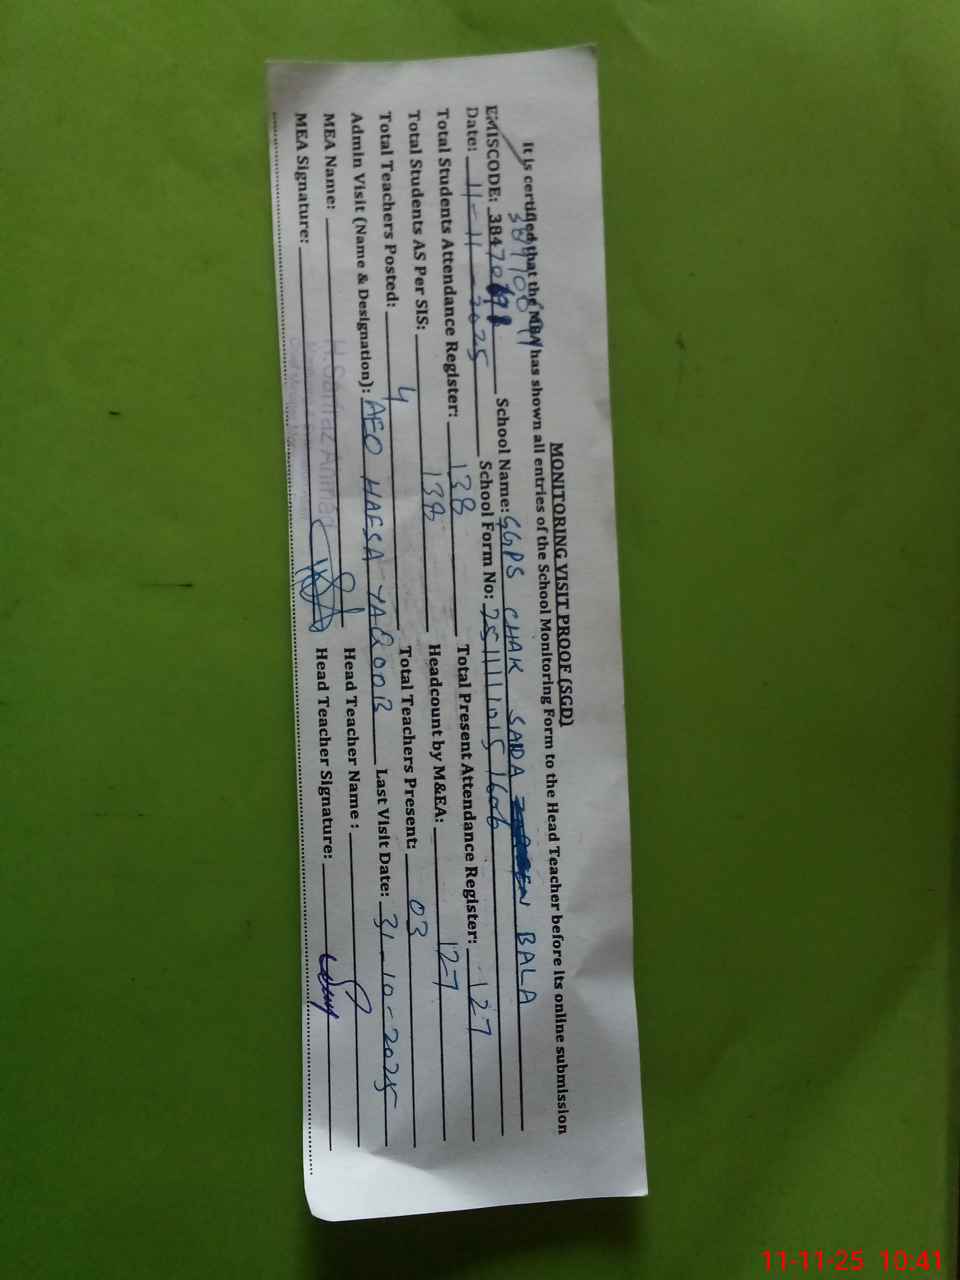 MONITORING VISIT PROOF (SGD)
It is certified that the MEA has shown all entries of the School Monitoring Form to the Head Teacher before its online submission
EMISCODE: 3847 School Name: SGPS CHAK SAIDA BALA
Date: 11-11-2025 School Form No: 25111110151606
Total Students Attendance Register: 138 Total Present Attendance Register: 127
Total Students AS Per SIS: 138 Headcount by M&EA: 127
Total Teachers Posted: 4 Total Teachers Present: 03
Admin Visit (Name & Designation): AEO HAFSA YAQOOB Last Visit Date: 31-10-2025
MEA Name: H. Safraz Ahmad Head Teacher Name :
MEA Signature: Head Teacher Signature:
11-11-25 10:41